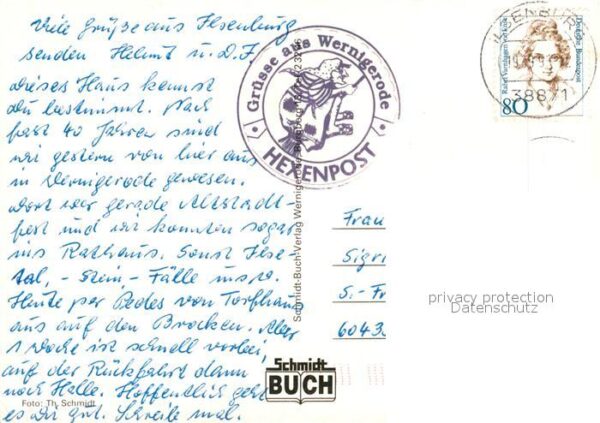 Viele Grüße aus Ilsenburg
senden Helmut u. D. F.
dieses Haus kennst
du bestimmt. Nach
fast 40 Jahren sind
wir gestern von hier aus
in Wernigerode gewesen.
Dort war gerade Altstadt-
fest und wir konnten sogar
ins Rathaus. Sonst Ilse-
tal, -stein, -Fälle usw.
Heute per Pedes von Torfhaus
aus auf den Brocken. Aber
1 Woche ist schnell vorbei,
auf der Rückfahrt dann
nach Halle. Hoffentlich geht
es dir gut. Schreib mal.
Foto: Th. Schmidt
Grüsse aus Wernigerode
HEXENPOST
Schmidt-Buch-Verlag Wernigerode
Schmidt
BUCH
ILSENBURG
3887 1
Rahel Varnhagen von Ense
Deutsche Bundespost
80
Frau
Sigri
S.-Fr
6043
privacy protection
Datenschutz